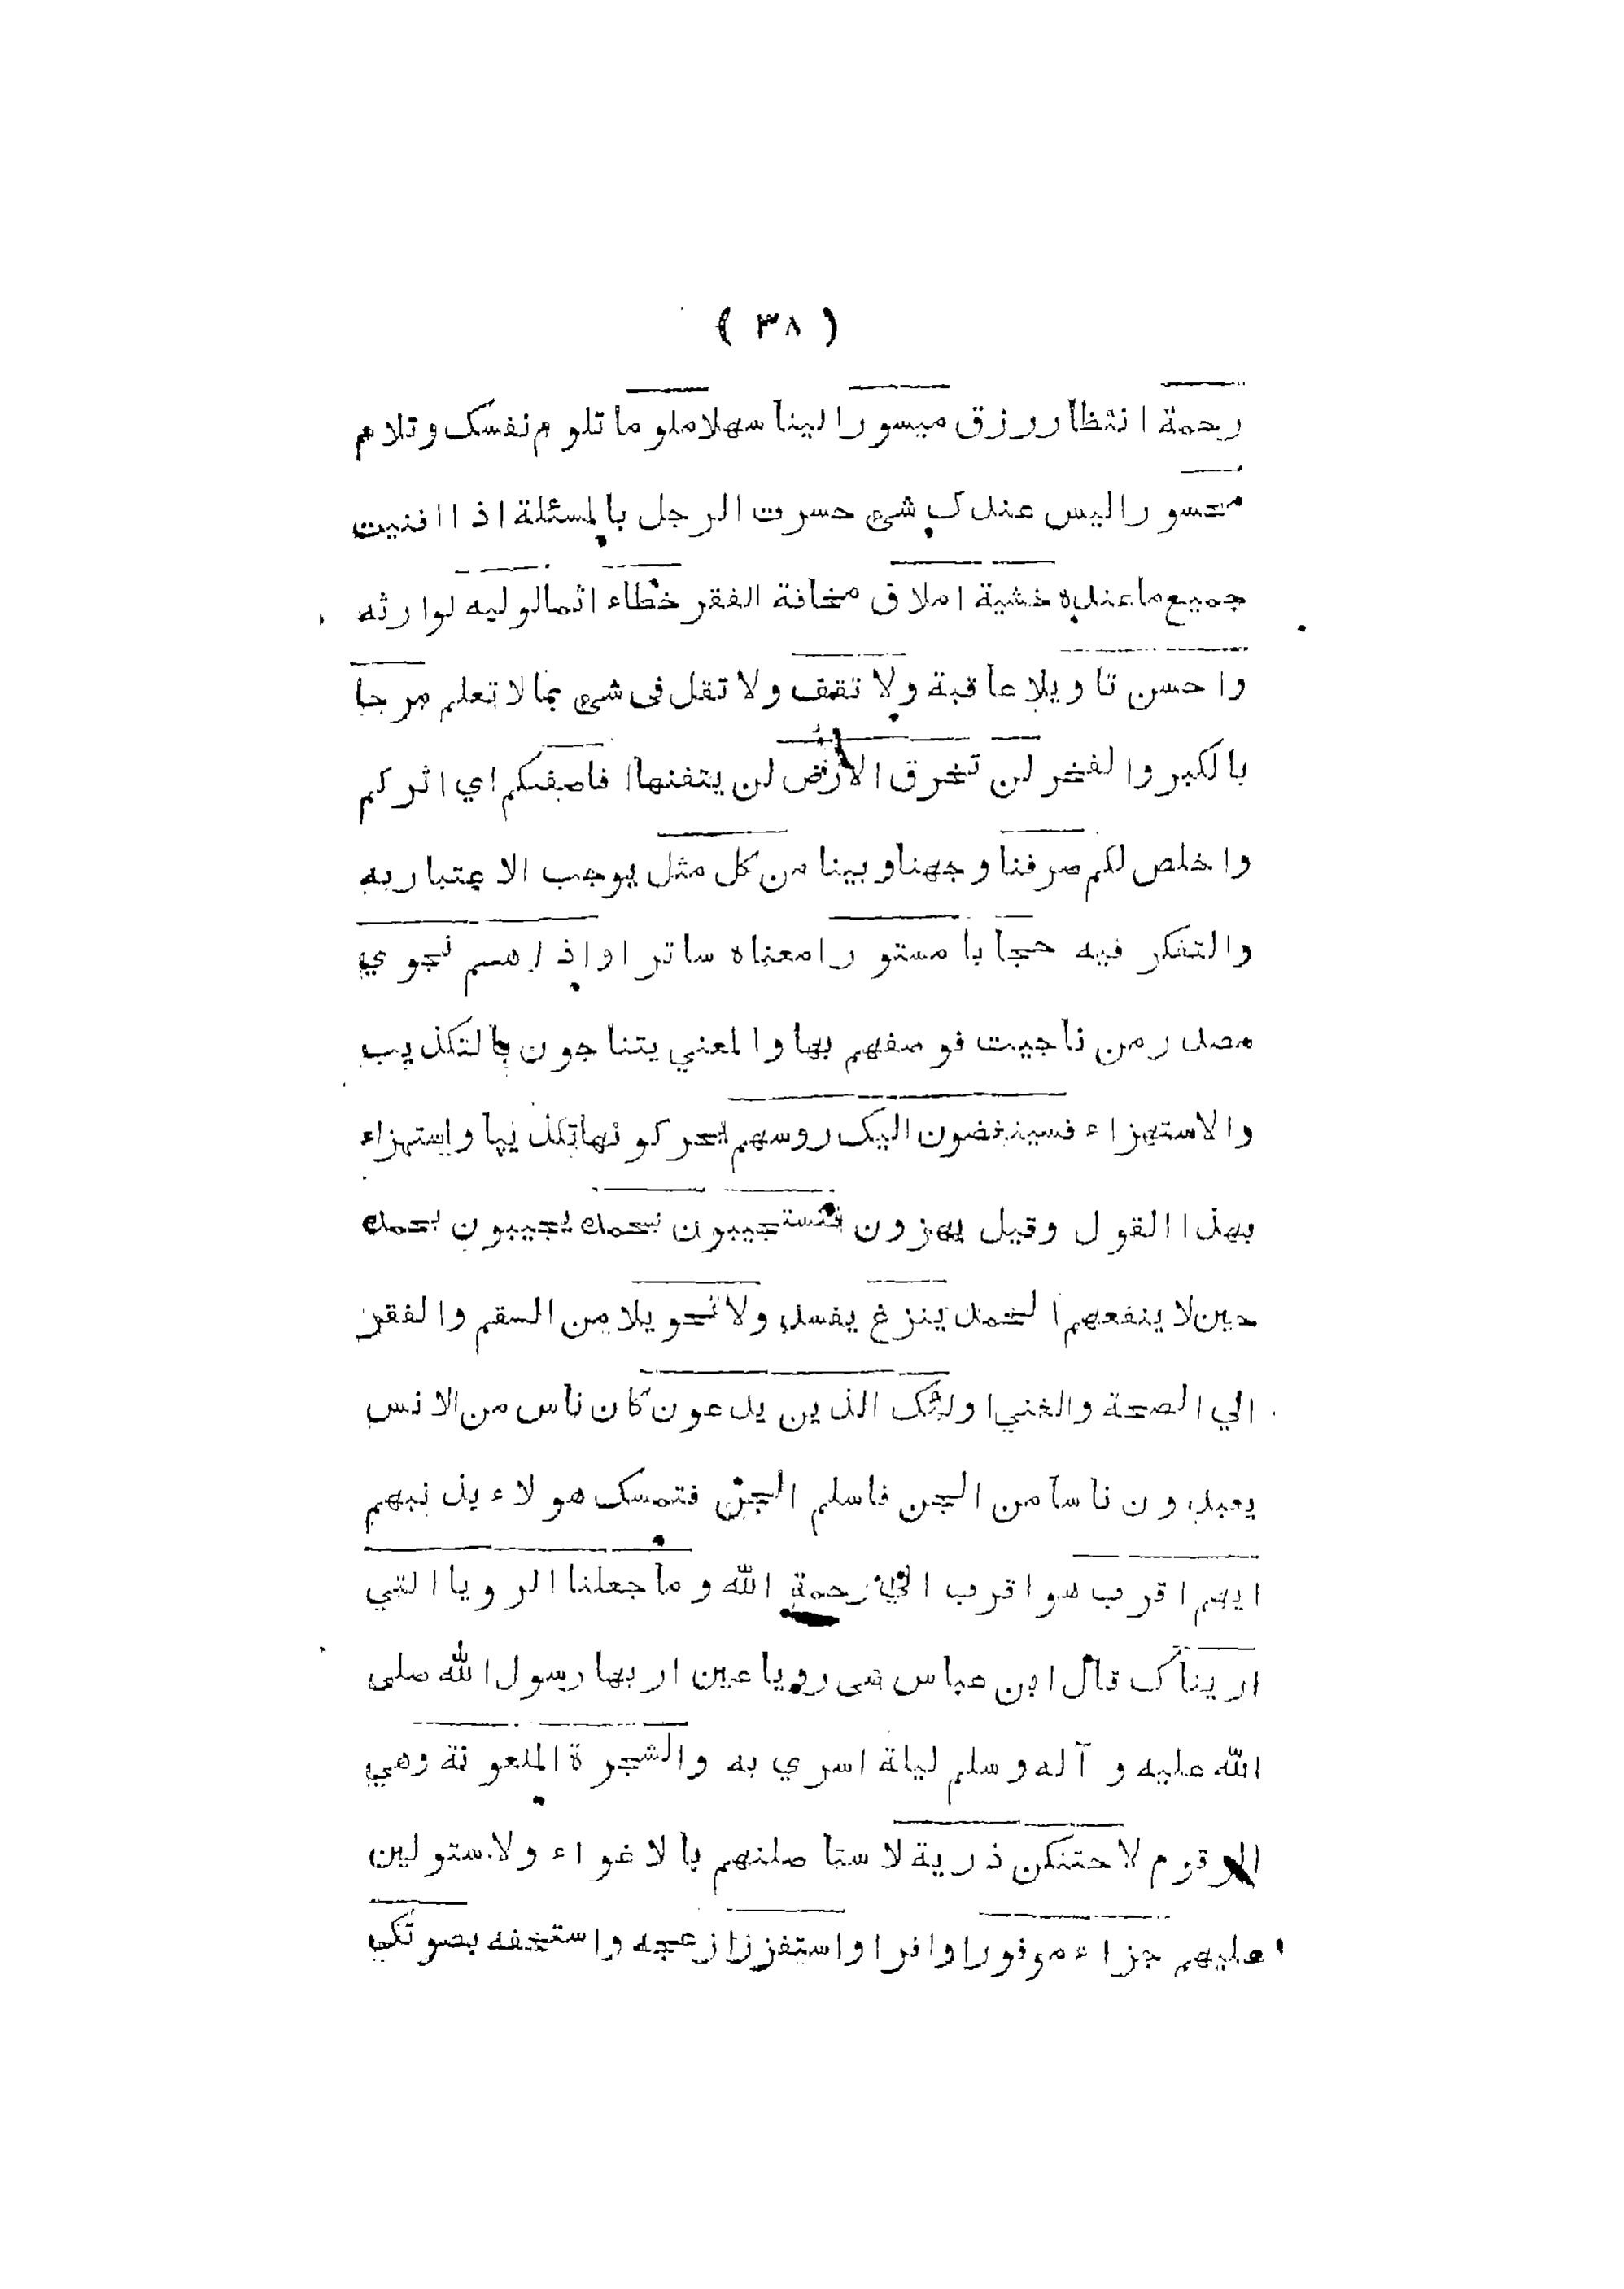 ( ٣٨ )
رحمة انتظار رزق ميسورا لينا سهلا ملوما تلوم نفسك وتلام
محسورا ليس عندك شيء حسرت الرجل بالمسئلة اذا افنيت
جميع ما عنده خشية املاق مخافة الفقر خطاء اثما لوليه لوارثه
واحسن تاويلا عاقبة ولا تقف ولا تقل في شيء بما لا تعلم مرحا
بالكبر والفخر لن تخرق الارض لن يتفنها افاصفكم اي اثركم
واخلص لكم صرفنا وجهنا وبينا من كل مثل يوجب الاعتبار به
والتفكر فيه حجابا مستورا معناه ساترا واذ هم نجوي
مصدر من ناجيت فوصفهم بها والمعني يتناجون بالتكذيب
والاستهزاء فسينغضون اليك روسهم يحركونها تكذيبا واستهزاء
بهذا القول وقيل يهزون فتستجيبون بحمده يجيبون بحمده
حين لا ينفعهم الحمد ينزغ يفسد ولا تحويلا من السقم والفقر
الي الصحة والغني اولئك الذين يدعون كان ناس من الانس
يعبدون ناسا من الجن فاسلم الجن فتمسك هولاء بذنبهم
ايهم اقرب هو اقرب الي رحمة الله وما جعلنا الرويا التي
اريناك قال ابن عباس هي رويا عين اريها رسول الله صلى
الله عليه و آله وسلم ليلة اسري به والشجرة الملعونة وهي
الزقوم لاحتنكن ذرية لاستاصلنهم بالاغواء ولاستولين
عليهم جزاء موفورا وافرا واستفزز ازعجه واستخفه بصوتك